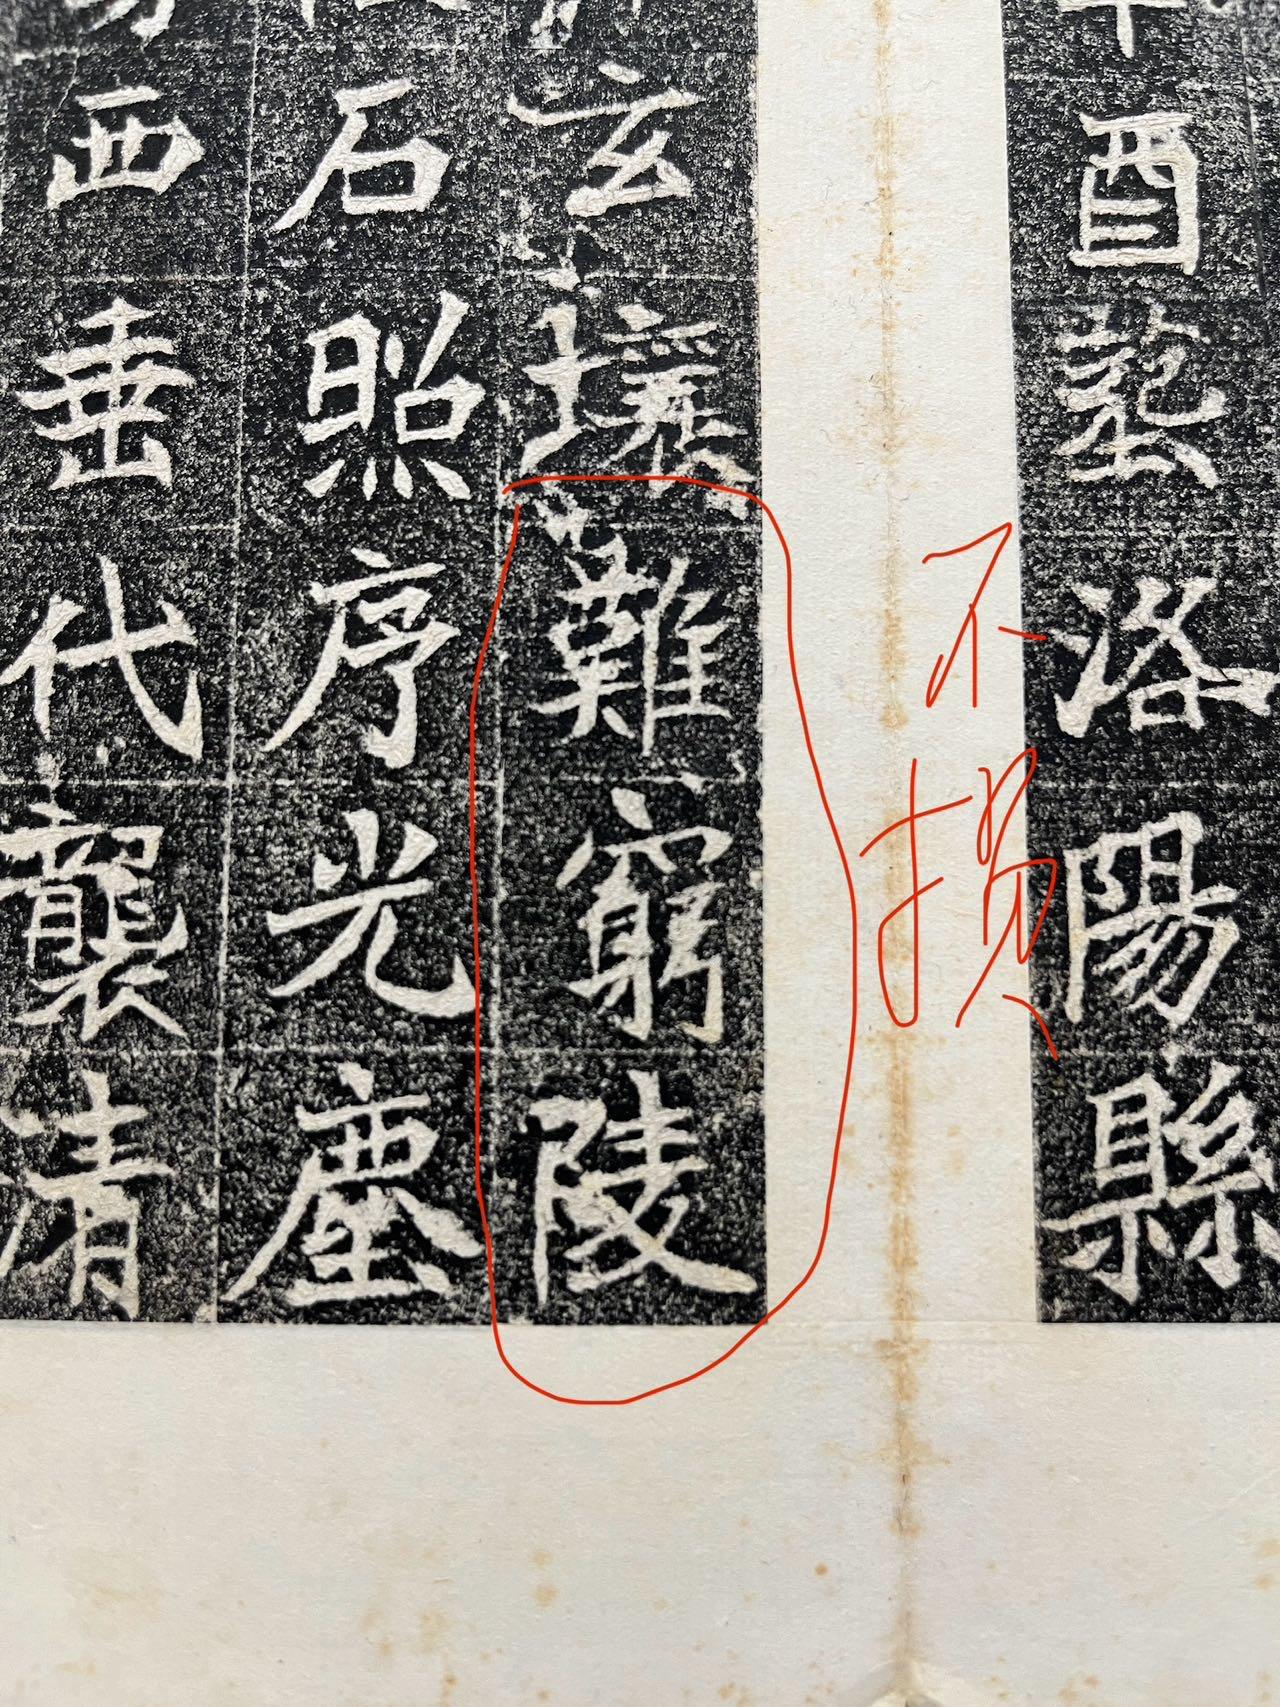 酉塟洛陽縣
玄壤難窮陵
石照序光塵
西垂代襲清
不損